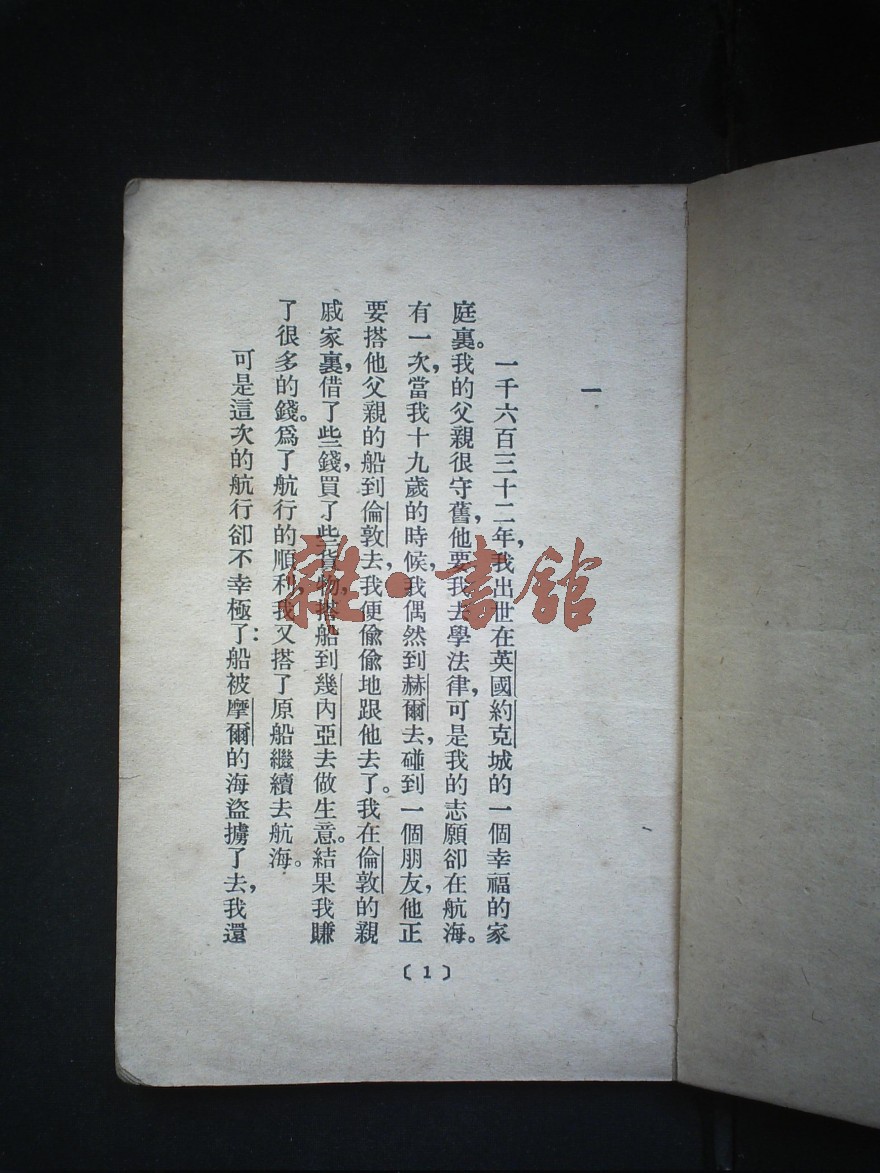 一
一千六百三十二年，我出世在英國約克城的一個幸福的家
庭裏。我的父親很守舊，他要我去學法律，可是我的志願卻在航海。
有一次，當我十九歲的時候，我偶然到赫爾去，碰到一個朋友，他正
要搭他父親的船到倫敦去，我便偸偸地跟他去了。我在倫敦的親
戚家裏，借了些錢，買了些貨物，搭船到幾內亞去做生意。結果我賺
了很多的錢。爲了航行的順利，我又搭了原船繼續去航海。
可是這次的航行卻不幸極了：船被摩爾的海盜擄了去，我還
〔1〕
雜·書館